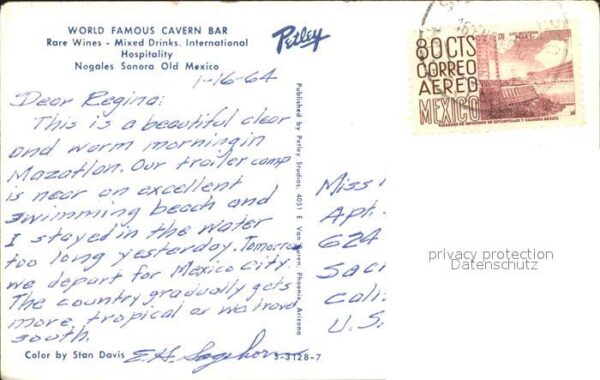 WORLD FAMOUS CAVERN BAR
Rare Wines - Mixed Drinks. International
Hospitality
Nogales Sonora Old Mexico
Petley
1-16-64
Dear Regina:
This is a beautiful clear
and warm morning in
Mazatlan. Our trailer camp
is near an excellent
swimming beach and
I stayed in the water
too long yesterday. Tomorrow
we depart for Mexico City.
The country gradually gets
more tropical as we travel
south.
Color by Stan Davis
S-3128-7
Published by Petley Studios, 4051 E. Van Buren, Phoenix, Arizona
80CTS
CORREO
AEREO
MEXICO
Miss
Apt.
624
Sac
Cali
U.S.
privacy protection
Datenschutz